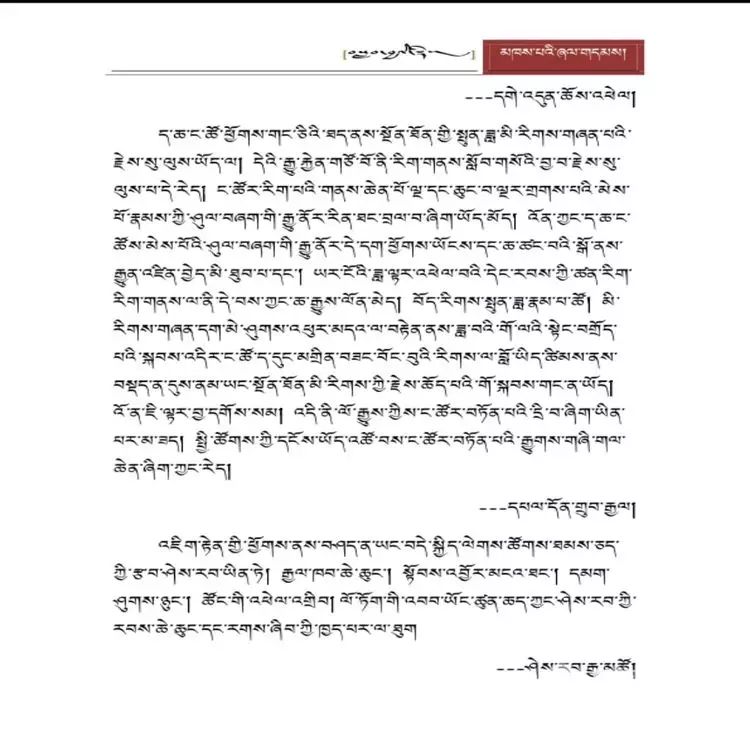 མཁས་པའི་ཞལ་གདམས།
---དགེ་འདུན་ཆོས་འཕེལ།
ད་ཆ་ང་ཚོ་ཕྱོགས་གང་ཅིའི་ཐད་ནས་སྔོན་ཐོན་གྱི་སྤུན་ཟླ་མི་རིགས་གཞན་པའི་
རྗེས་སུ་ལུས་ཡོད་ལ། དེའི་རྒྱུ་རྐྱེན་གཙོ་བོ་ནི་རིག་གནས་སློབ་གསོའི་བྱ་བ་རྗེས་སུ་
ལུས་པ་དེ་རེད། ང་ཚོར་རིག་པའི་གནས་ཆེན་པོ་ལྔ་དང་ཆུང་བ་ལྔར་གྲགས་པའི་མེས་
པོ་རྣམས་ཀྱི་ཤུལ་བཞག་གི་རྒྱུ་ནོར་རིན་ཐང་བྲལ་བ་ཞིག་ཡོད་མོད། འོན་ཀྱང་ད་ཆ་ང་
ཚོས་མེས་པོའི་ཤུལ་བཞག་གི་རྒྱུ་ནོར་དེ་དག་ཕྱོགས་ཡོངས་དང་ཆ་ཚང་བའི་སྒོ་ནས་
རྒྱུན་འཛིན་བྱེད་མི་ཐུབ་པ་དང་། ཡར་ངོའི་ཟླ་ལྟར་འཕེལ་བའི་དེང་རབས་ཀྱི་ཚན་རིག་
རིག་གནས་ལ་ནི་དེ་བས་ཀྱང་ཆ་རྒྱུས་ལོན་མེད། བོད་རིགས་སྤུན་ཟླ་རྣམ་པ་ཚོ། མི་
རིགས་གཞན་དག་མེ་ཤུགས་འཕུར་མདའ་ལ་བརྟེན་ནས་ཟླ་བའི་གོ་ལའི་སྟེང་བགྲོད་
པའི་སྐབས་འདིར་ང་ཚོ་ད་དུང་མགྲིན་བཟང་བོང་བུའི་རིགས་ལ་བློ་ཡིད་ཚིམས་ནས་
བསྡད་ན་དུས་ནམ་ཡང་སྔོན་ཐོན་མི་རིགས་ཀྱི་རྗེས་ཆོད་པའི་གོ་སྐབས་གང་ན་ཡོད།
འོ་ན་ཇི་ལྟར་བྱ་དགོས་སམ། འདི་ནི་ལོ་རྒྱུས་ཀྱིས་ང་ཚོར་བཏོན་པའི་དྲི་བ་ཞིག་ཡིན་
པར་མ་ཟད། སྤྱི་ཚོགས་ཀྱི་དངོས་ཡོད་འཚོ་བས་ང་ཚོར་བཏོན་པའི་རྒྱུགས་གཞི་གལ་
ཆེན་ཞིག་ཀྱང་རེད།
---དཔལ་དོན་གྲུབ་རྒྱལ།
འཇིག་རྟེན་གྱི་ཕྱོགས་ནས་བཤད་ན་ཡང་བདེ་སྐྱིད་ལེགས་ཚོགས་ཐམས་ཅད་
ཀྱི་རྩ་བ་ཤེས་རབ་ཡིན་ཏེ། རྒྱལ་ཁབ་ཆེ་ཆུང་། སྟོབས་འབྱོར་མངའ་ཐང་། དམག་
ཤུགས་ཉུང་། ཚོང་གི་འཕེལ་འགྲིབ། ལོ་ཏོག་གི་འབབ་ཡོང་ཚུན་ཆད་ཀྱང་ཤེས་རབ་ཀྱི་
རབས་ཆེ་ཆུང་དང་རགས་ཞིབ་ཀྱི་ཁྱད་པར་ལ་ཐུག
---ཤེས་རབ་རྒྱ་མཚོ།